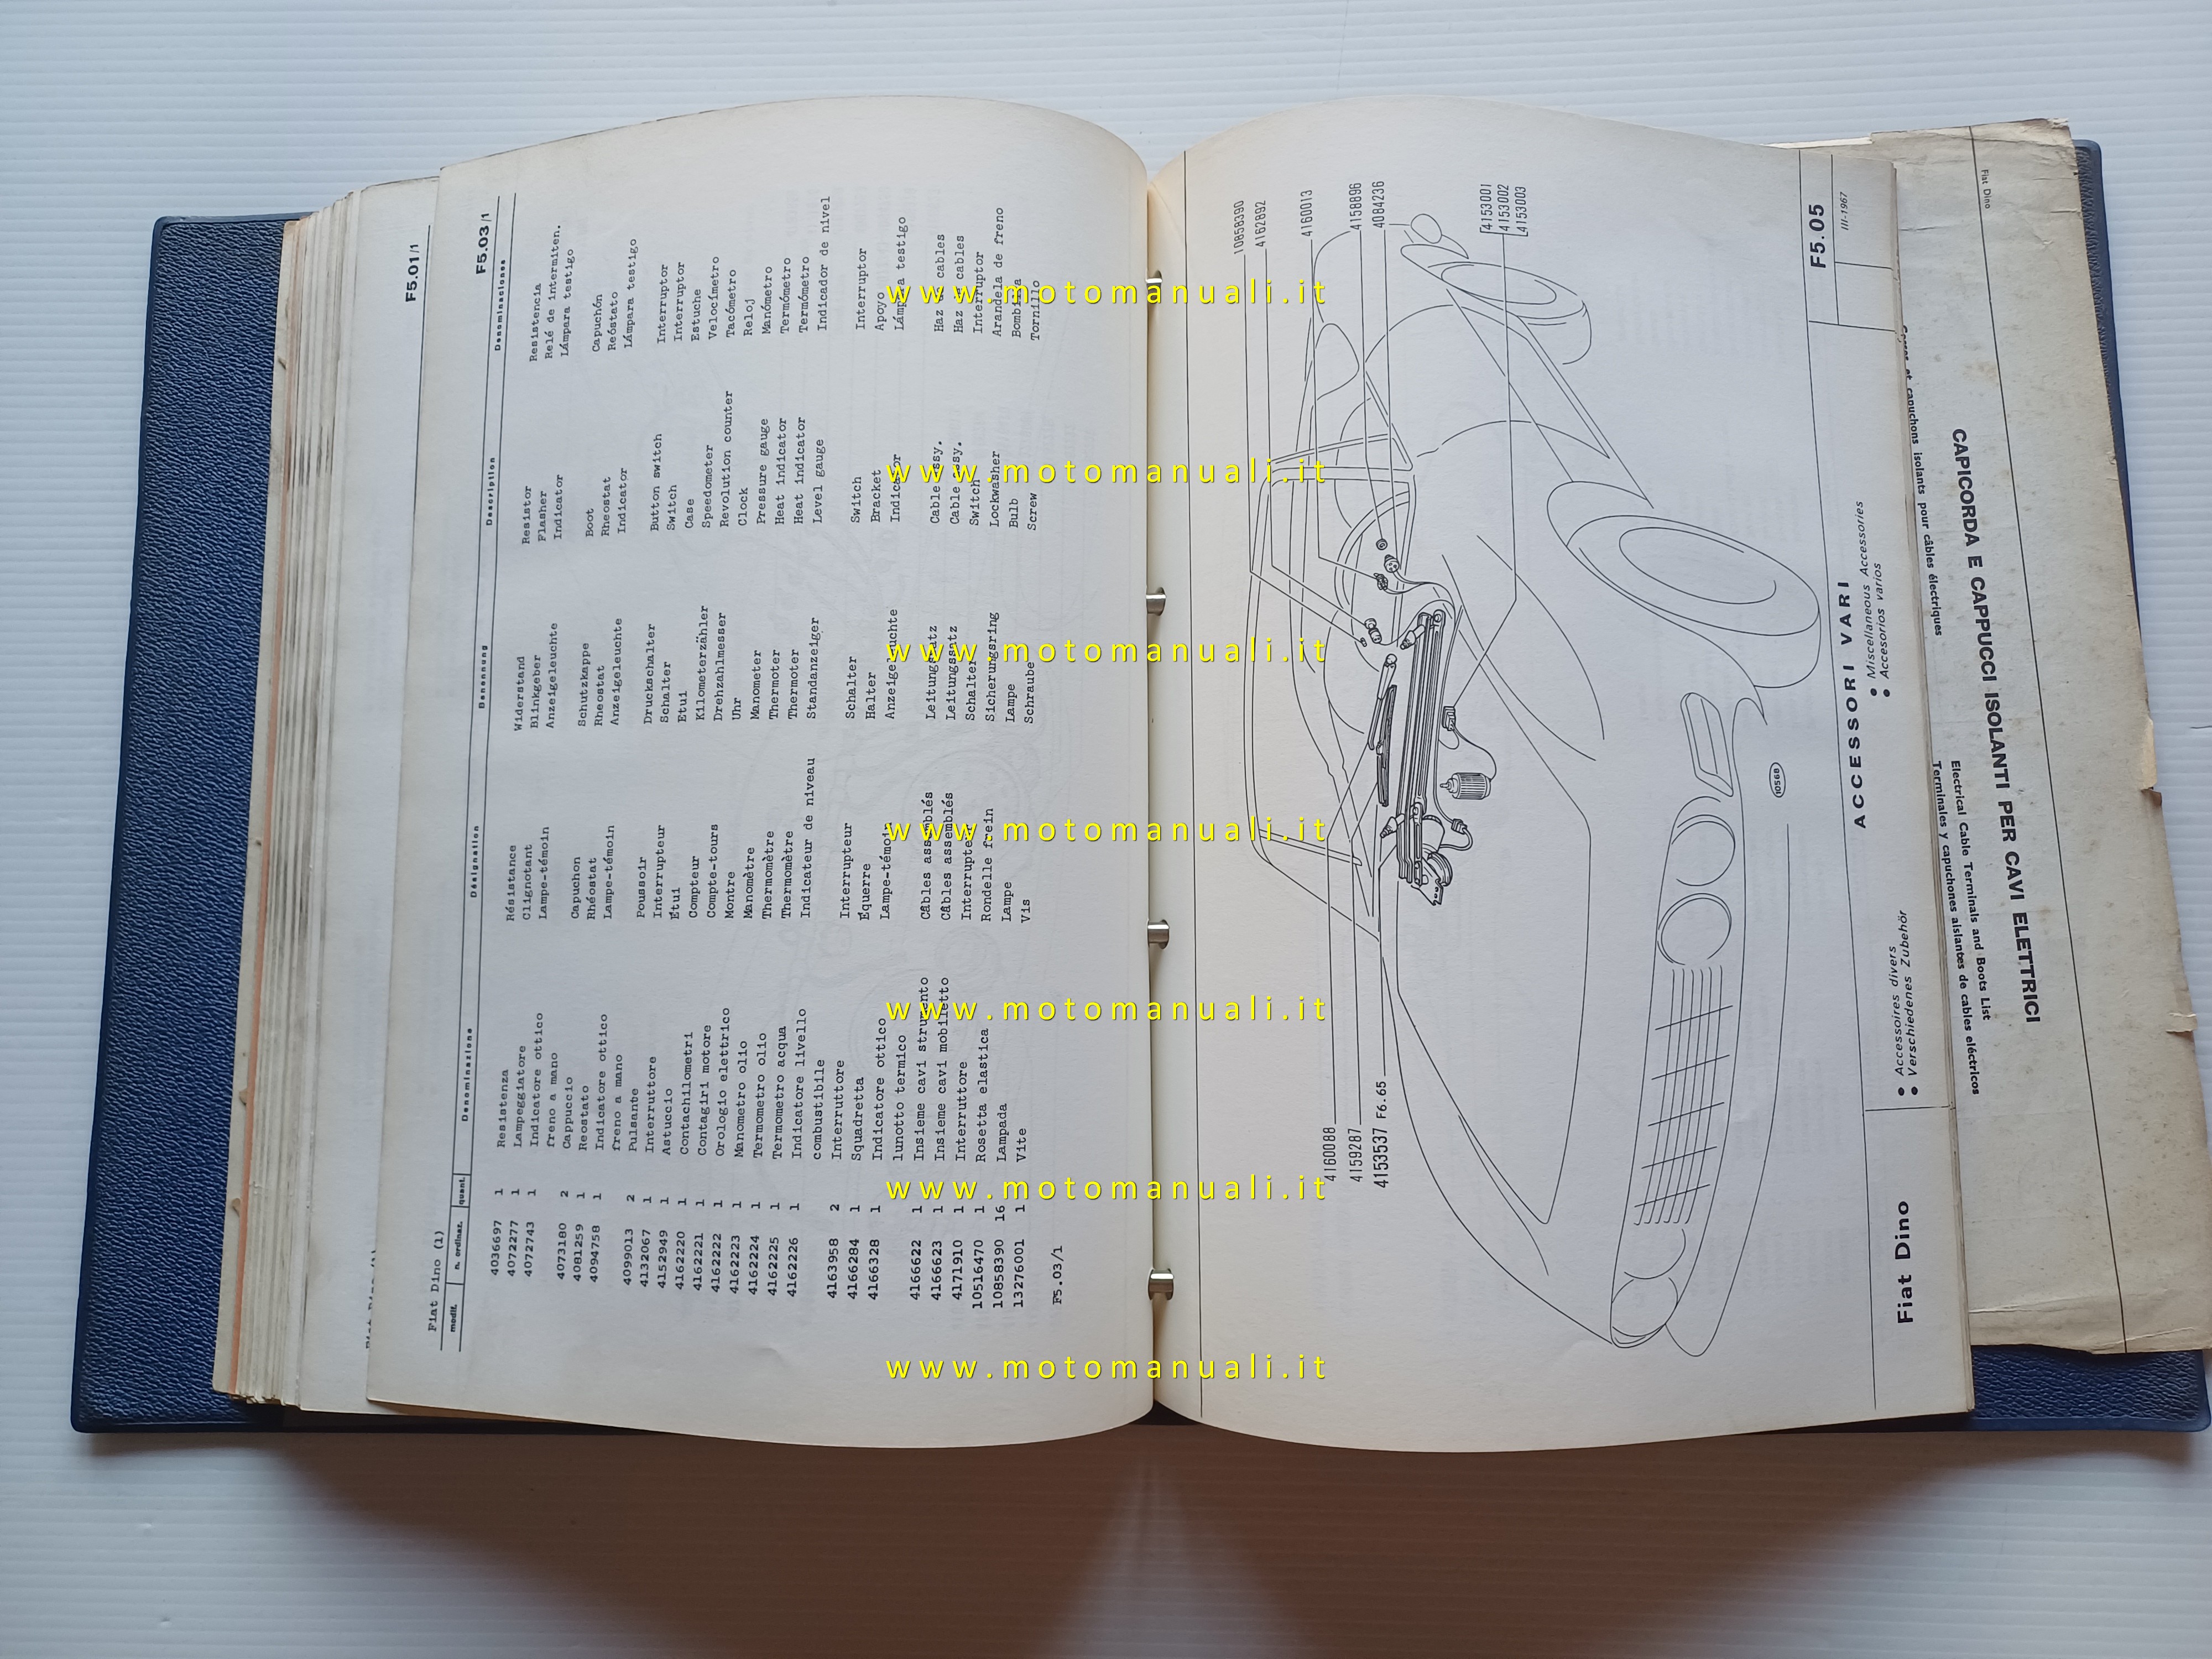 F5.01/1
Fiat Dino (1)
F5.03/1
modif. n. ordinaz. quant. Denominazione Désignation Benennung Description Denominaciones
4036697 1 Resistenza Résistance Widerstand Resistor Resistencia
4072277 1 Lampeggiatore Clignotant Blinkgeber Flasher Relé de intermiten.
4072743 1 Indicatore ottico Lampe-témoin Anzeigeleuchte Indicator Lámpara testigo
freno a mano
4073180 2 Cappuccio Capuchon Schutzkappe Boot Capuchón
4081259 1 Reostato Rhéostat Rheostat Rheostat Reóstato
4094758 1 Indicatore ottico Lampe-témoin Anzeigeleuchte Indicator Lámpara testigo
freno a mano
4099013 2 Pulsante Poussoir Druckschalter Button switch Interruptor
4132067 1 Interruttore Interrupteur Schalter Switch Interruptor
4152949 1 Astuccio Étui Etui Case Estuche
4162220 1 Contachilometri Compteur Kilometerzähler Speedometer Velocímetro
4162221 1 Contagiri motore Compte-tours Drehzahlmesser Revolution counter Tacómetro
4162222 1 Orologio elettrico Montre Uhr Clock Reloj
4162223 1 Manometro olio Manomètre Manometer Pressure gauge Manómetro
4162224 1 Termometro olio Thermomètre Thermoter Heat indicator Termómetro
4162225 1 Termometro acqua Thermomètre Thermoter Heat indicator Termómetro
4162226 1 Indicatore livello Indicateur de niveau Standanzeiger Level gauge Indicador de nivel
combustibile
4163958 2 Interruttore Interrupteur Schalter Switch Interruptor
4166284 1 Squadretta Équerre Halter Bracket Apoyo
4166328 1 Indicatore ottico Lampe-témoin Anzeigeleuchte Indicator Lámpara testigo
lunotto termico
4166622 1 Insieme cavi strumento Câbles assemblés Leitungssatz Cable assy. Haz de cables
4166623 1 Insieme cavi mobiletto Câbles assemblés Leitungssatz Cable assy. Haz de cables
4171910 1 Interruttore Interrupteur Schalter Switch Interruptor
10516470 1 Rosetta elastica Rondelle frein Sicherungsring Lockwasher Arandela de freno
10858390 16 Lampada Lampe Lampe Bulb Bombilla
13276001 1 Vite Vis Schraube Screw Tornillo
F5.03/1
10858390
4162892
4160013
4158896
4084236
4153001
4153002
4153003
4160088
4159287
4153537 F6.65
10568
Fiat Dino
ACCESSORI VARI
● Accessoires divers
● Verschiedenes Zubehör
● Miscellaneous Accessories
● Accesorios varios
F5.05
III-1967
Fiat Dino
CAPICORDA E CAPPUCCI ISOLANTI PER CAVI ELETTRICI
et capuchons isolants pour câbles électriques
Electrical Cable Terminals and Boots List
Terminales y capuchones aislantes de cables eléctricos
www.motomanuali.it
www.motomanuali.it
www.motomanuali.it
www.motomanuali.it
www.motomanuali.it
www.motomanuali.it
www.motomanuali.it